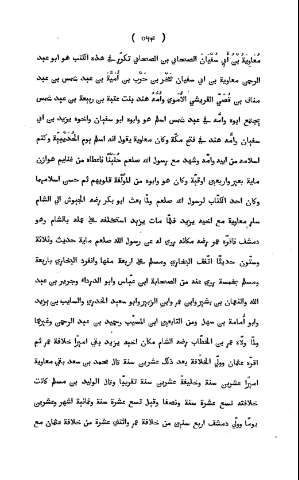 ( ٥٦٤ )
معاوية بن ابى سفيان الصحابى بن الصحابى تكرر فى هذه الكتب هو ابو عبد
الرحمن معاوية بن ابى سفيان صخر بن حرب بن أمية بن عبد شمس بن عبد
مناف بن قصى القريشى الأموى وأمه هند بنت عتبة بن ربيعة بن عبد شمس
يجتمع ابوه وامه فى عبد شمس اسلم هو وابوه ابو سفيان واخوه يزيد بن ابى
سفيان وامه هند فى فتح مكة وكان معاوية يقول انه اسلم يوم الحديبية وكتم
اسلامه من ابيه وامه وشهد مع رسول الله صلعم حنينا فأعطاه من غنايم هوازن
ماية بعير واربعين اوقية وكان هو وابوه من المولفة قلوبهم ثم حسن اسلامهما
وكان احد الكتاب لرسول الله صلعم ولما بعث ابو بكر رضه الجيوش الى الشام
سار معاوية مع اخيه يزيد فلما مات يزيد استخلفه على عمله بالشام وهو
دمشق فاقره عمر رضه مكانه روى له عن رسول الله صلعم ماية حديث وثلاثة
وستون حديثا اتفق البخارى ومسلم على اربعة منها وانفرد البخارى باربعة
ومسلم بخمسة روى عنه من الصحابة ابن عباس وابو الدرداء وجرير بن عبد
الله والنعمان بن بشير وابن عمر وابن الزبير وابو سعيد الخدرى والسايب بن يزيد
وابو أمامة بن سهل ومن التابعين ابن المسيب وحميد بن عبد الرحمن وغيرهما
ولما ولاه عمر بن الخطاب رضه الشام مكان اخيه يزيد بقى اميرا خلافة عمر ثم
اقره عثمان وولى الخلافة بعد ذلك عشرين سنة قال محمد بن سعد بقى معاوية
اميرا عشرين سنة وخليفة عشرين سنة تقريبا وقال الوليد بن مسلم كانت
خلافته تسع عشرة سنة ونصفا وقيل تسع عشرة سنة وثمانية اشهر وعشرين
يوما وولى دمشق اربع سنين من خلافة عمر واثنتى عشرة من خلافة عثمان مع